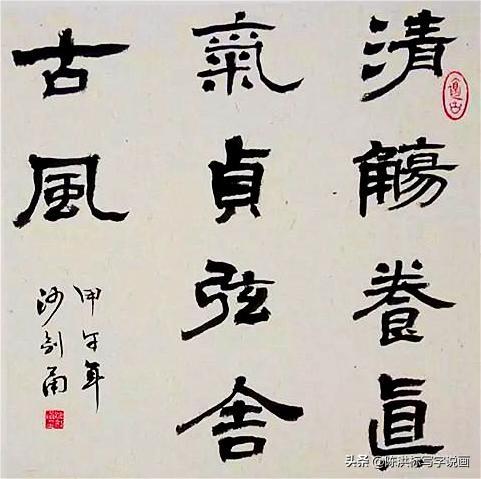 清觴養眞
氣貞弦舍
古風
甲午年
沙
头条 @陈洪标写字说画